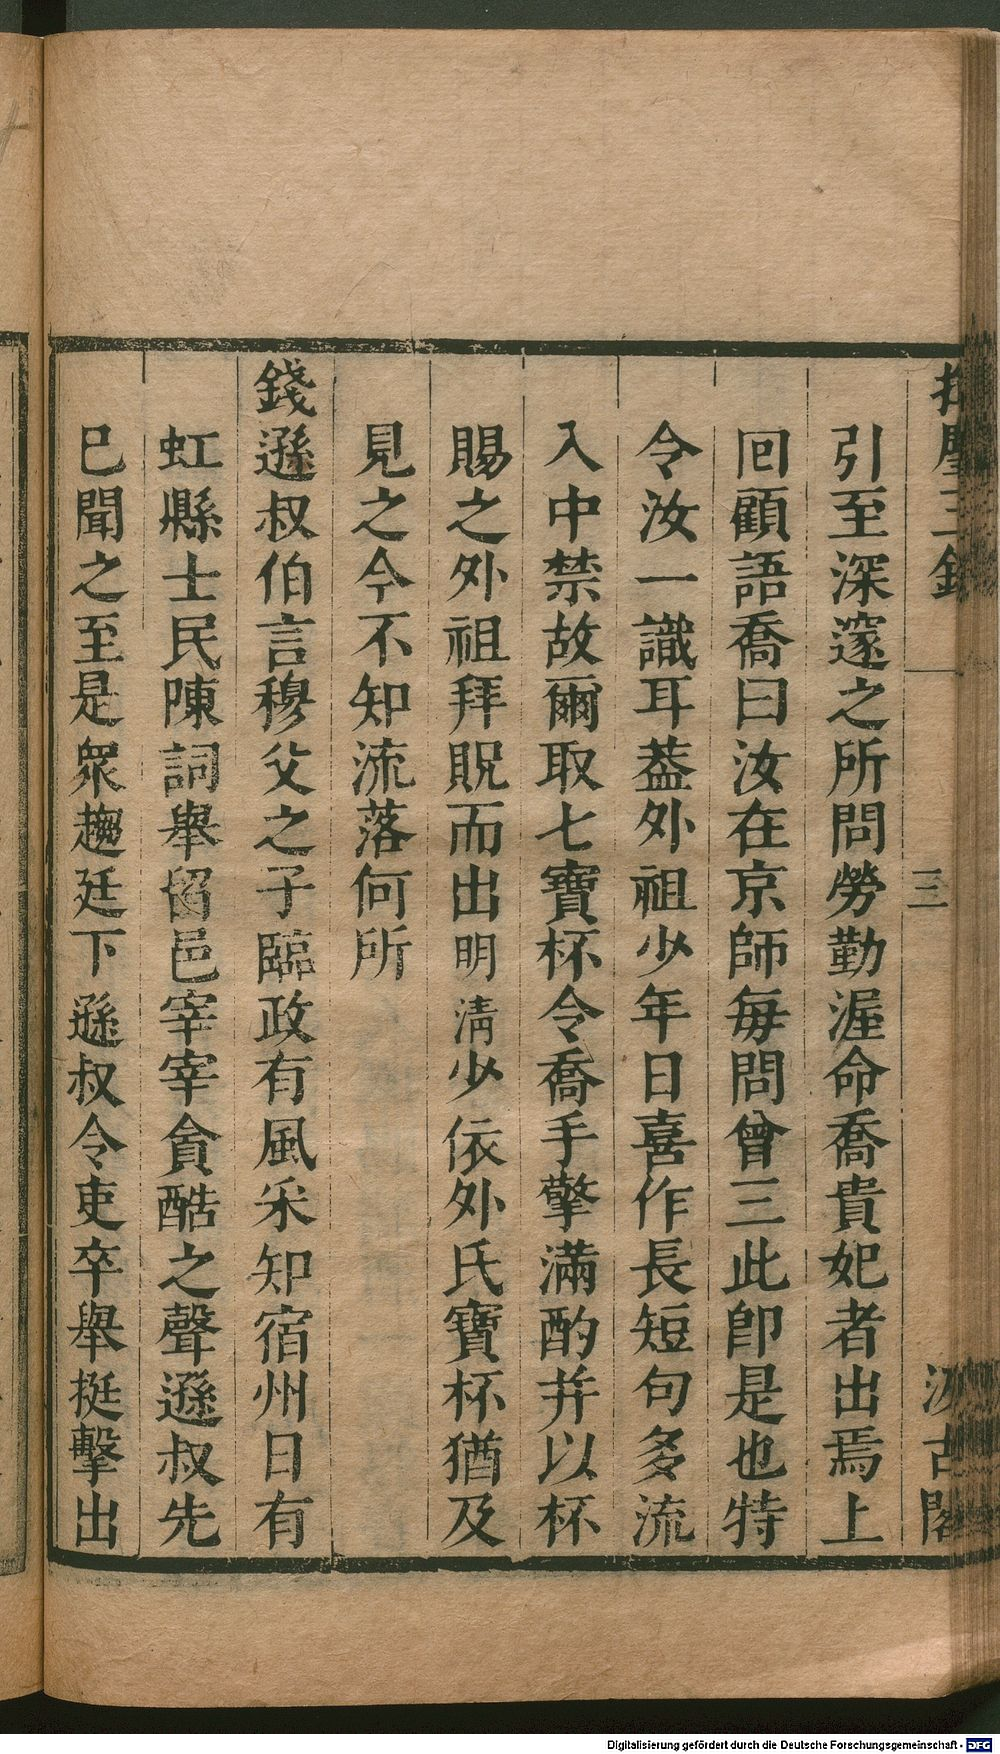 三錄
三
古閣
引至深邃之所問勞勤渥命喬貴妃者出焉上
回顧語喬曰汝在京師每問曾三此卽是也特
令汝一識耳葢外祖少年日喜作長短句多流
入中禁故爾取七寶杯令喬手擎滿酌幷以杯
賜之外祖拜貺而出明清少依外氏寶杯猶及
見之今不知流落何所
錢遜叔伯言穆父之子臨政有風采知宿州日有
虹縣士民陳詞舉留邑宰宰貪酷之聲遜叔先
已聞之至是眾趨廷下遜叔令吏卒舉挺擊出
Digitalisierung gefördert durch die Deutsche Forschungsgemeinschaft - DFG